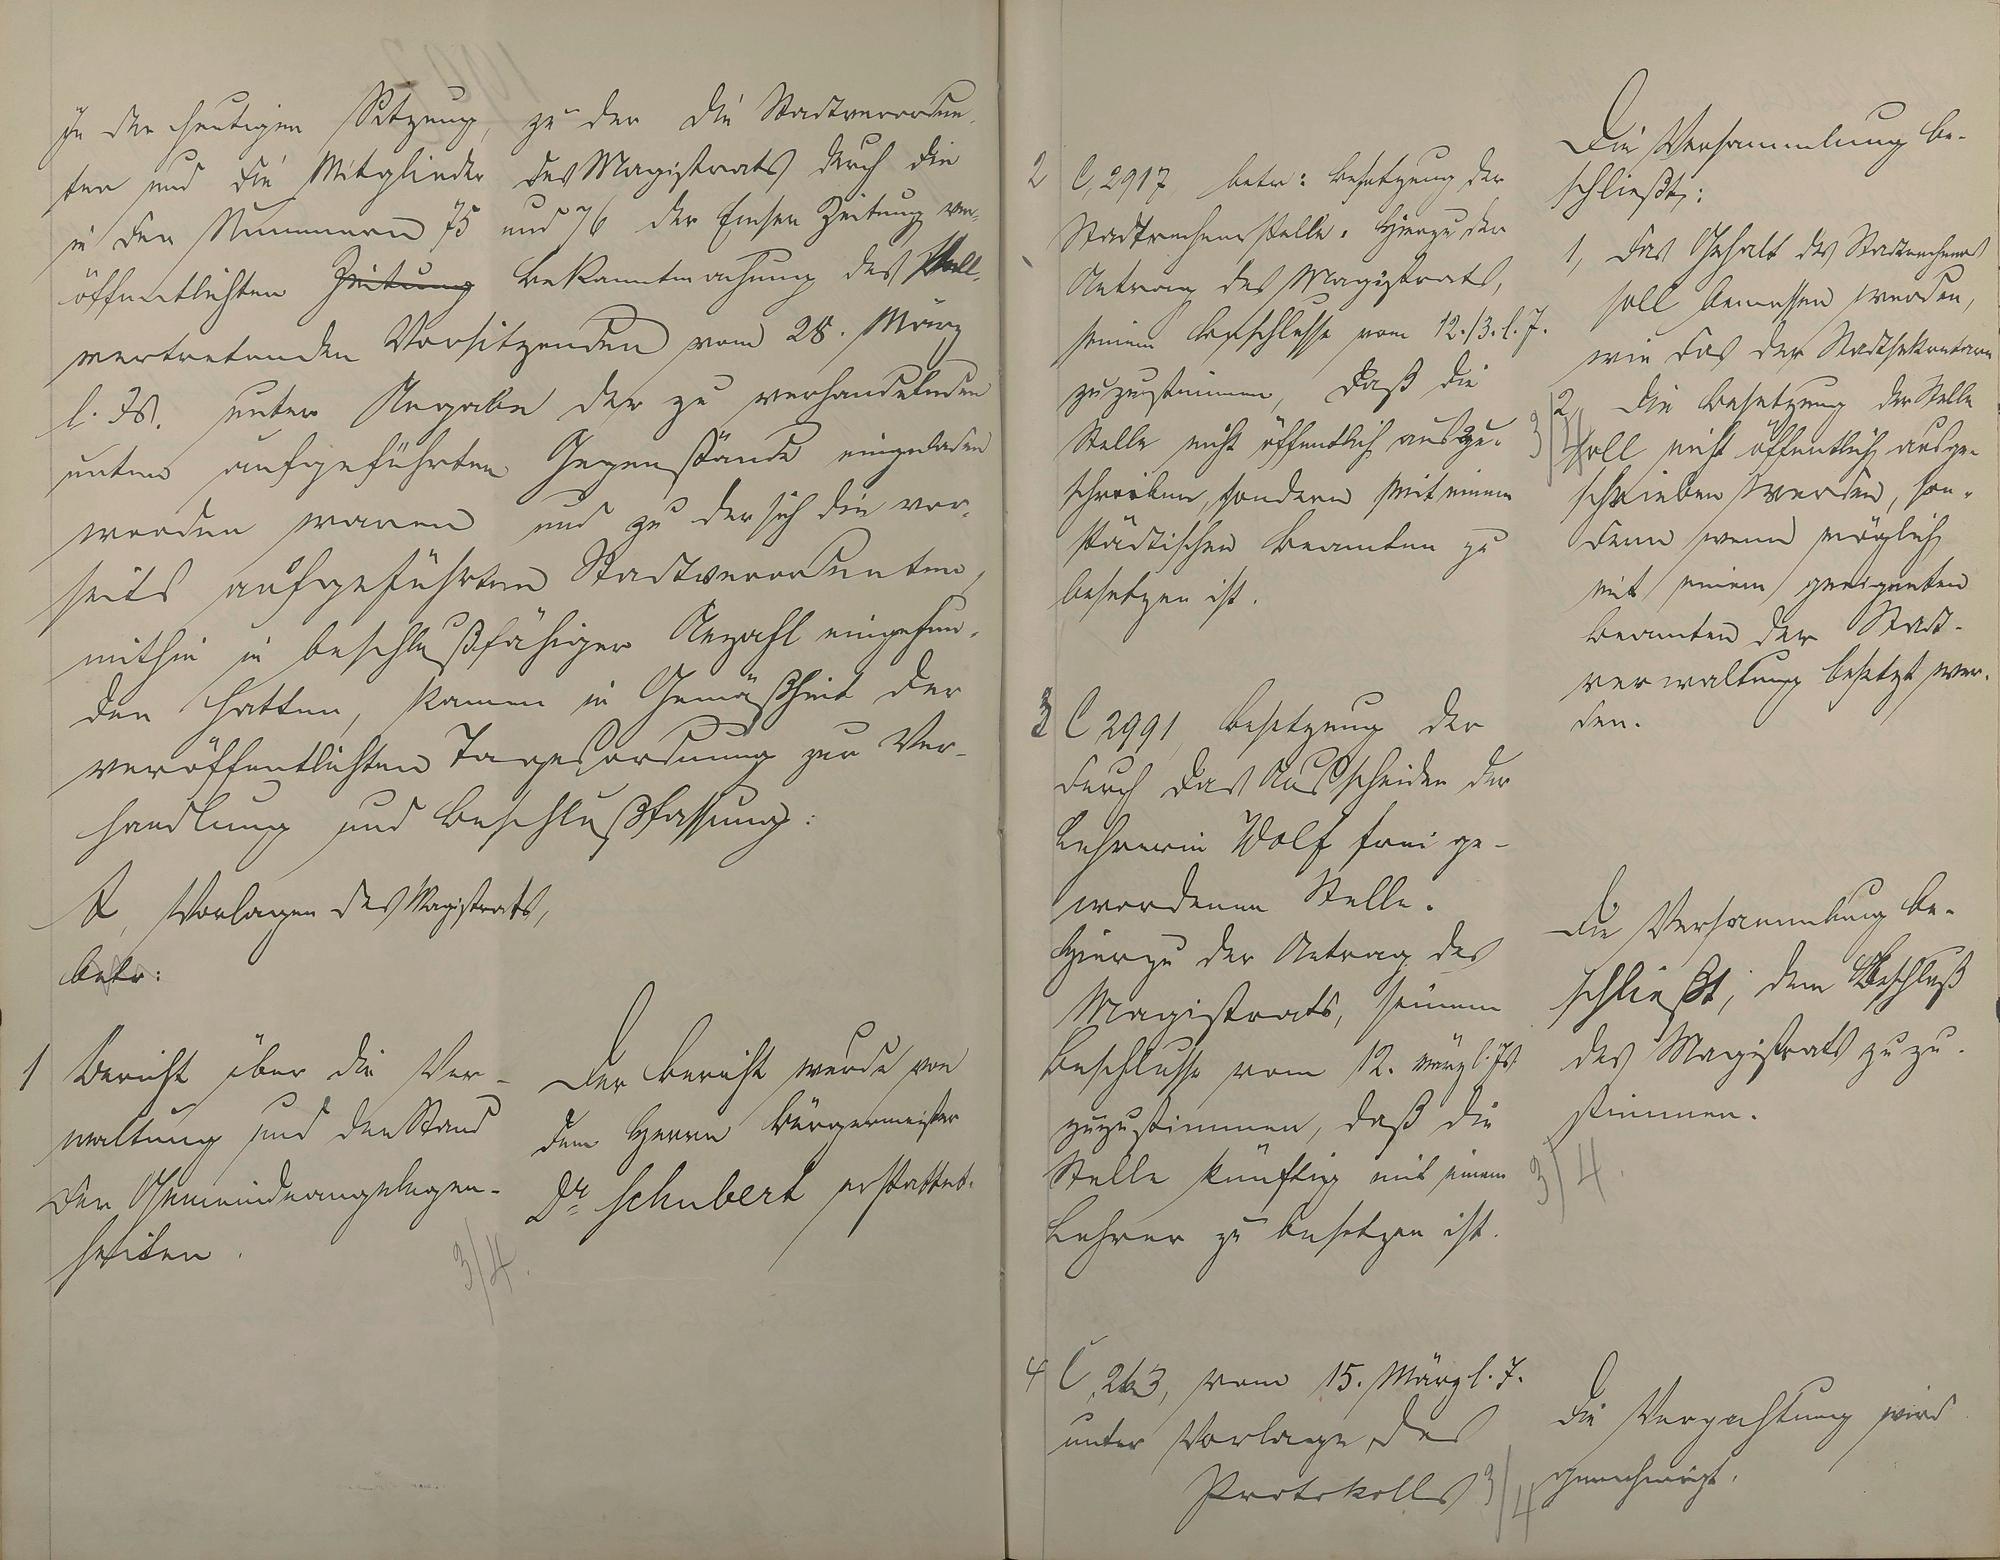 In der heutigen Sitzung, zu der die Stadtverordne-
ten und die Mitglieder des Magistrats durch die
in den Nummern 75 und 76 der Emser Zeitung ver-
öffentlichten Zeitung Bekanntmachung des stell-
vertretenden Vorsitzenden vom 28. März
l. Js. unter Angabe der zu verhandelnden
unten aufgeführten Gegenstände eingeladen
worden waren und zu der sich die vor-
seits aufgeführten Stadtverordneten,
mithin in beschlußfähiger Anzahl eingefun-
den hatten, kamen in Gemäßheit der
veröffentlichten Tagesordnung zur Ver-
handlung und Beschlußfassung:
A, Vorlagen des Magistrats,
betr:
1 Bericht über die Ver-
waltung und den Stand
der Gemeindeangelegen-
heiten.
3/4.
Der Bericht wurde von
dem Herrn Bürgermeister
Dr Schubert erstattet.
2 C, 2917 betr: Besetzung der
Stadtrechnerstelle. Hierzu der
Antrag des Magistrats,
seinem Beschlusse vom 12./3. l. J.
zuzustimmen, daß die
Stelle nicht öffentlich auszu-
schreiben, sondern mit einem
städtischen Beamten zu
besetzen ist.
Die Versammlung be-
schließt:
1, Das Gehalt des Stadtrechners
soll bemessen werden,
wie das der Stadtsekretäre
2, Die Besetzung der Stelle
soll nicht öffentlich ausge-
schrieben werden, son-
dern wenn möglich
mit einem geeigneten
Beamten der Stadt-
verwaltung besetzt wer-
den.
3/4
3 C 2991, Besetzung der
durch das Ausscheiden der
Lehrerin Wolf frei ge-
wordenen Stelle.
Hierzu der Antrag des
Magistrats, seinem
Beschlusse vom 12. März l. Js
zuzustimmen, daß die
Stelle künftig mit einem
Lehrer zu besetzen ist.
Die Versammlung be-
schließt, dem Beschluß
des Magistrats zuzu-
stimmen.
3/4.
4 C, 263, vom 15. März l. J.
unter Vorlage des
Protokolls
Die Verpachtung wird
genehmigt.
3/4